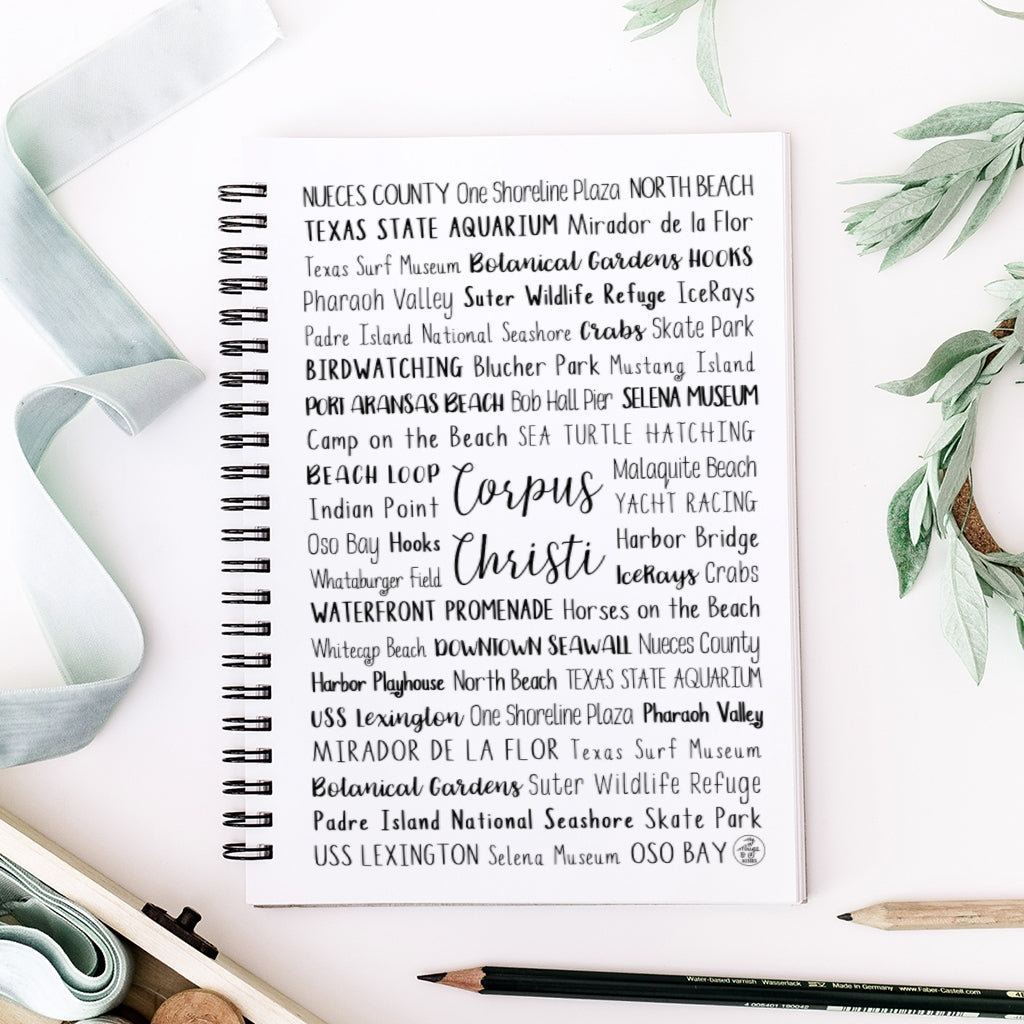 NUECES COUNTY One Shoreline Plaza NORTH BEACH
TEXAS STATE AQUARIUM Mirador de la Flor
Texas Surf Museum Botanical Gardens HOOKS
Pharaoh Valley Suter Wildlife Refuge IceRays
Padre Island National Seashore Crabs Skate Park
BIRDWATCHING Blucher Park Mustang Island
PORT ARANSAS BEACH Bob Hall Pier SELENA MUSEUM
Camp on the Beach SEA TURTLE HATCHING
BEACH LOOP Corpus Malaquite Beach
Indian Point YACHT RACING
Oso Bay Hooks Christi Harbor Bridge
Whataburger Field IceRays Crabs
WATERFRONT PROMENADE Horses on the Beach
Whitecap Beach DOWNTOWN SEAWALL Nueces County
Harbor Playhouse North Beach TEXAS STATE AQUARIUM
USS Lexington One Shoreline Plaza Pharaoh Valley
MIRADOR DE LA FLOR Texas Surf Museum
Botanical Gardens Suter Wildlife Refuge
Padre Island National Seashore Skate Park
USS LEXINGTON Selena Museum OSO BAY
Water-based varnish Wasserlack Made in Germany www.Faber-Castell.com
4 005401 190042